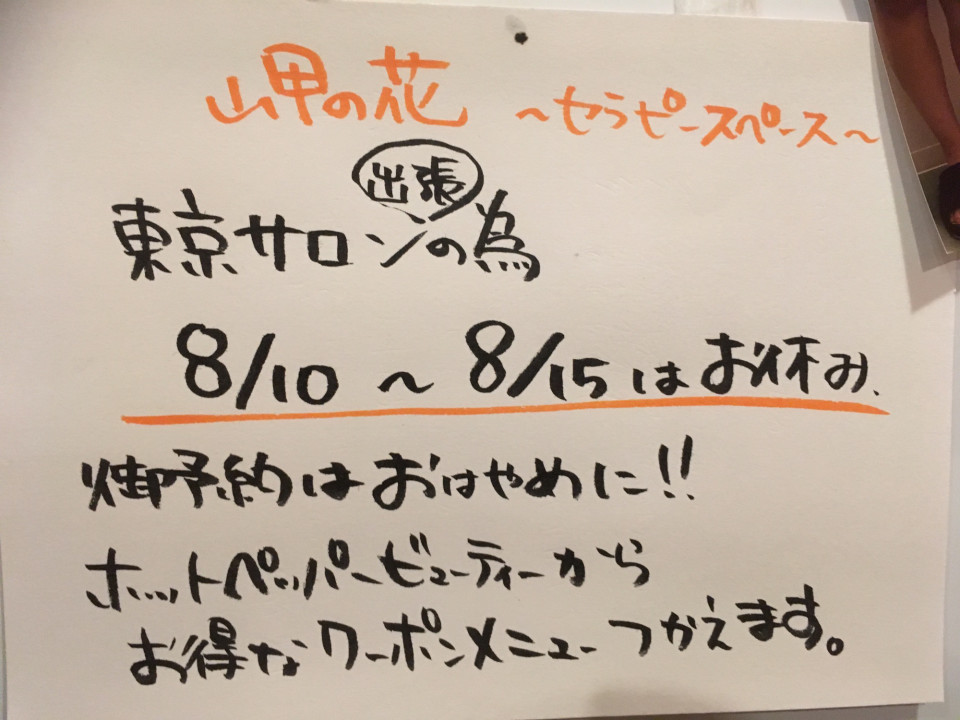 岬の花 ~セラピースペース~
出張
東京サロンの為
8/10 ~ 8/15 はお休み、
御予約はおはやめに!!
ホットペッパービューティーから
お得なクーポンメニューつかえます。